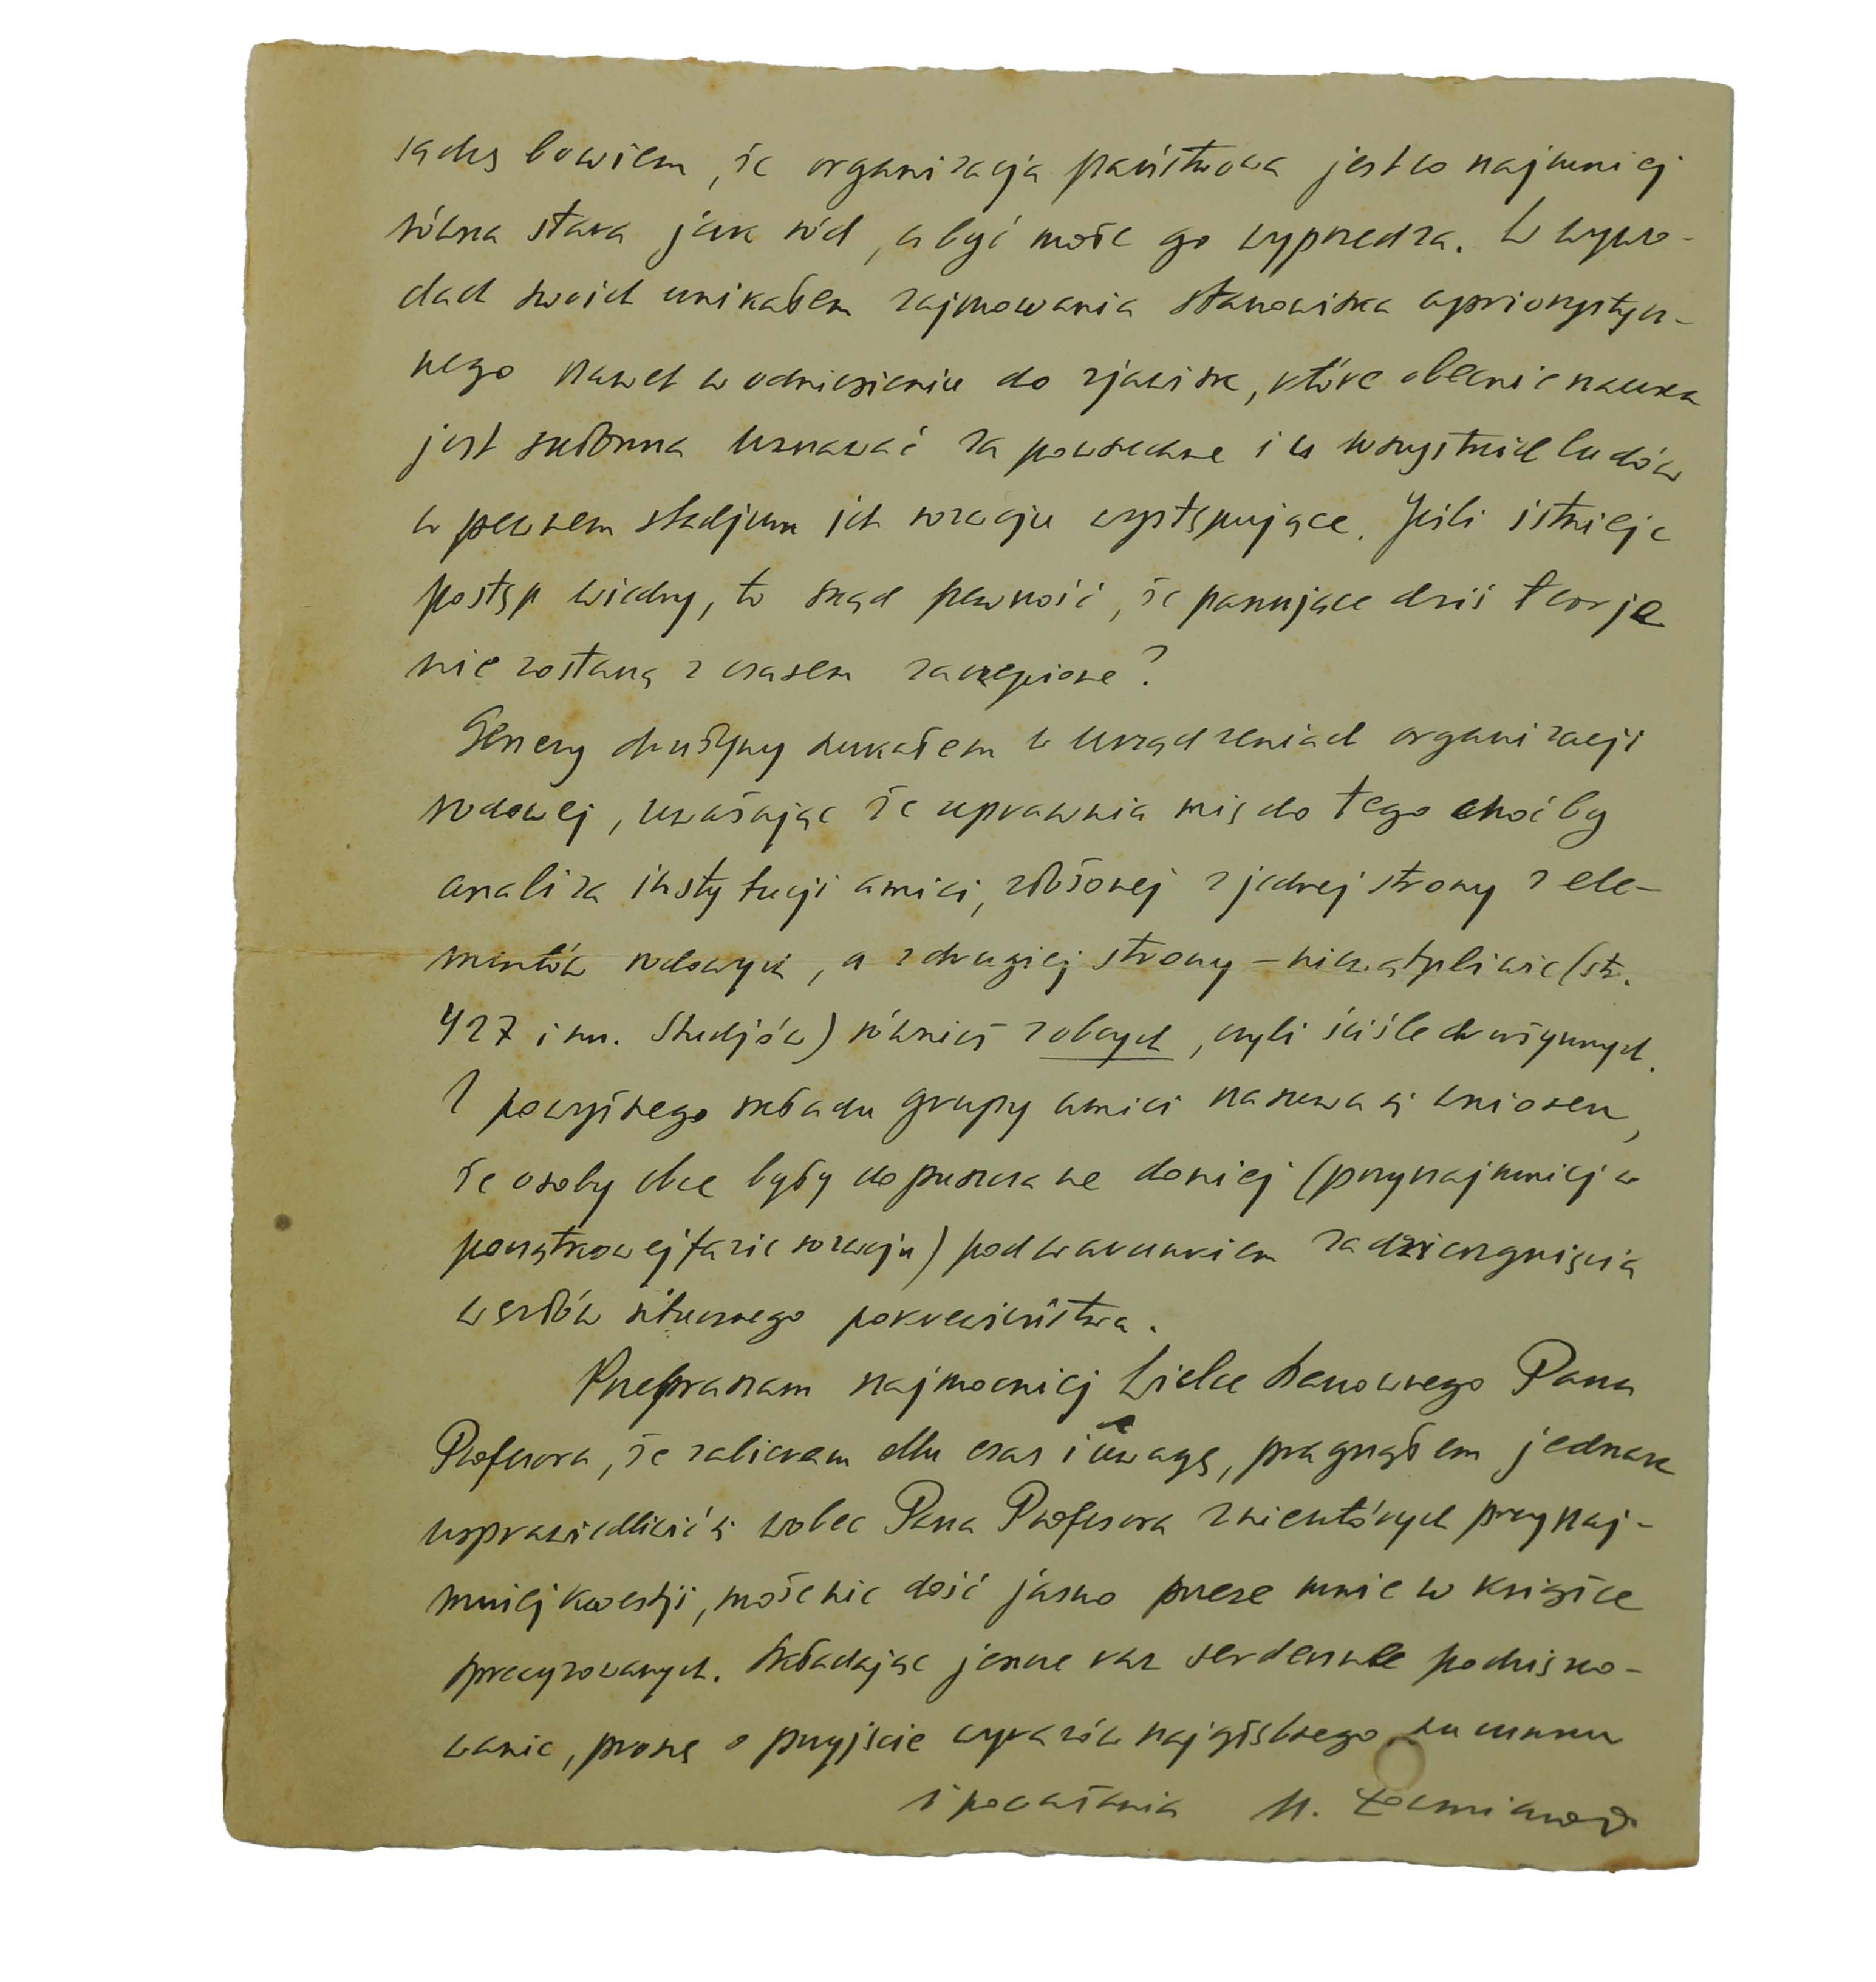 sądzę bowiem, że organizacja państwowa jest co najmniej
równa stara jak ród, a być może go wyprzedza. W wywo-
dach swoich unikałem zajmowania stanowiska apriorystycz-
nego nawet w odniesieniu do zjawisk, które obecnie nauka
jest skłonna uznawać za powszechne i u wszystkich ludów
w pewnem stadjum ich rozwoju występujące. Jeśli istnieje
postęp wiedzy, to skąd pewność, że panujące dziś teorje
nie zostaną z czasem zaczepione?
Genezy drużyny szukałem w urządzeniach organizacji
rodowej, uważając że uprawnia mię do tego choćby
analiza instytucji amici, złożonej z jednej strony z ele-
mentów rodowych, a z drugiej strony – niewątpliwie (str.
427 i nn. Studjów) również z obcych, czyli ściśle drużynnych.
Z powyższego składu grupy amici nasuwa się wniosek,
że osoby obce były dopuszczane do niej (przynajmniej w
początkowej fazie rozwoju) pod warunkiem zadzierzgnięcia
węzłów sztucznego pokrewieństwa.
Przepraszam najmocniej Wielce Szanownego Pana
Profesora, że zabieram Mu czas i uwagę, pragnąłem jednak
usprawiedliwić się wobec Pana Profesora z niektórych przynaj-
mniej kwestji, może nie dość jasno przeze mnie w książce
sprecyzowanych. Składając jeszcze raz serdeczne podzięko-
wanie, proszę o przyjście wyrazów najgłębszego szacunku
i poważania H. Łowmiański